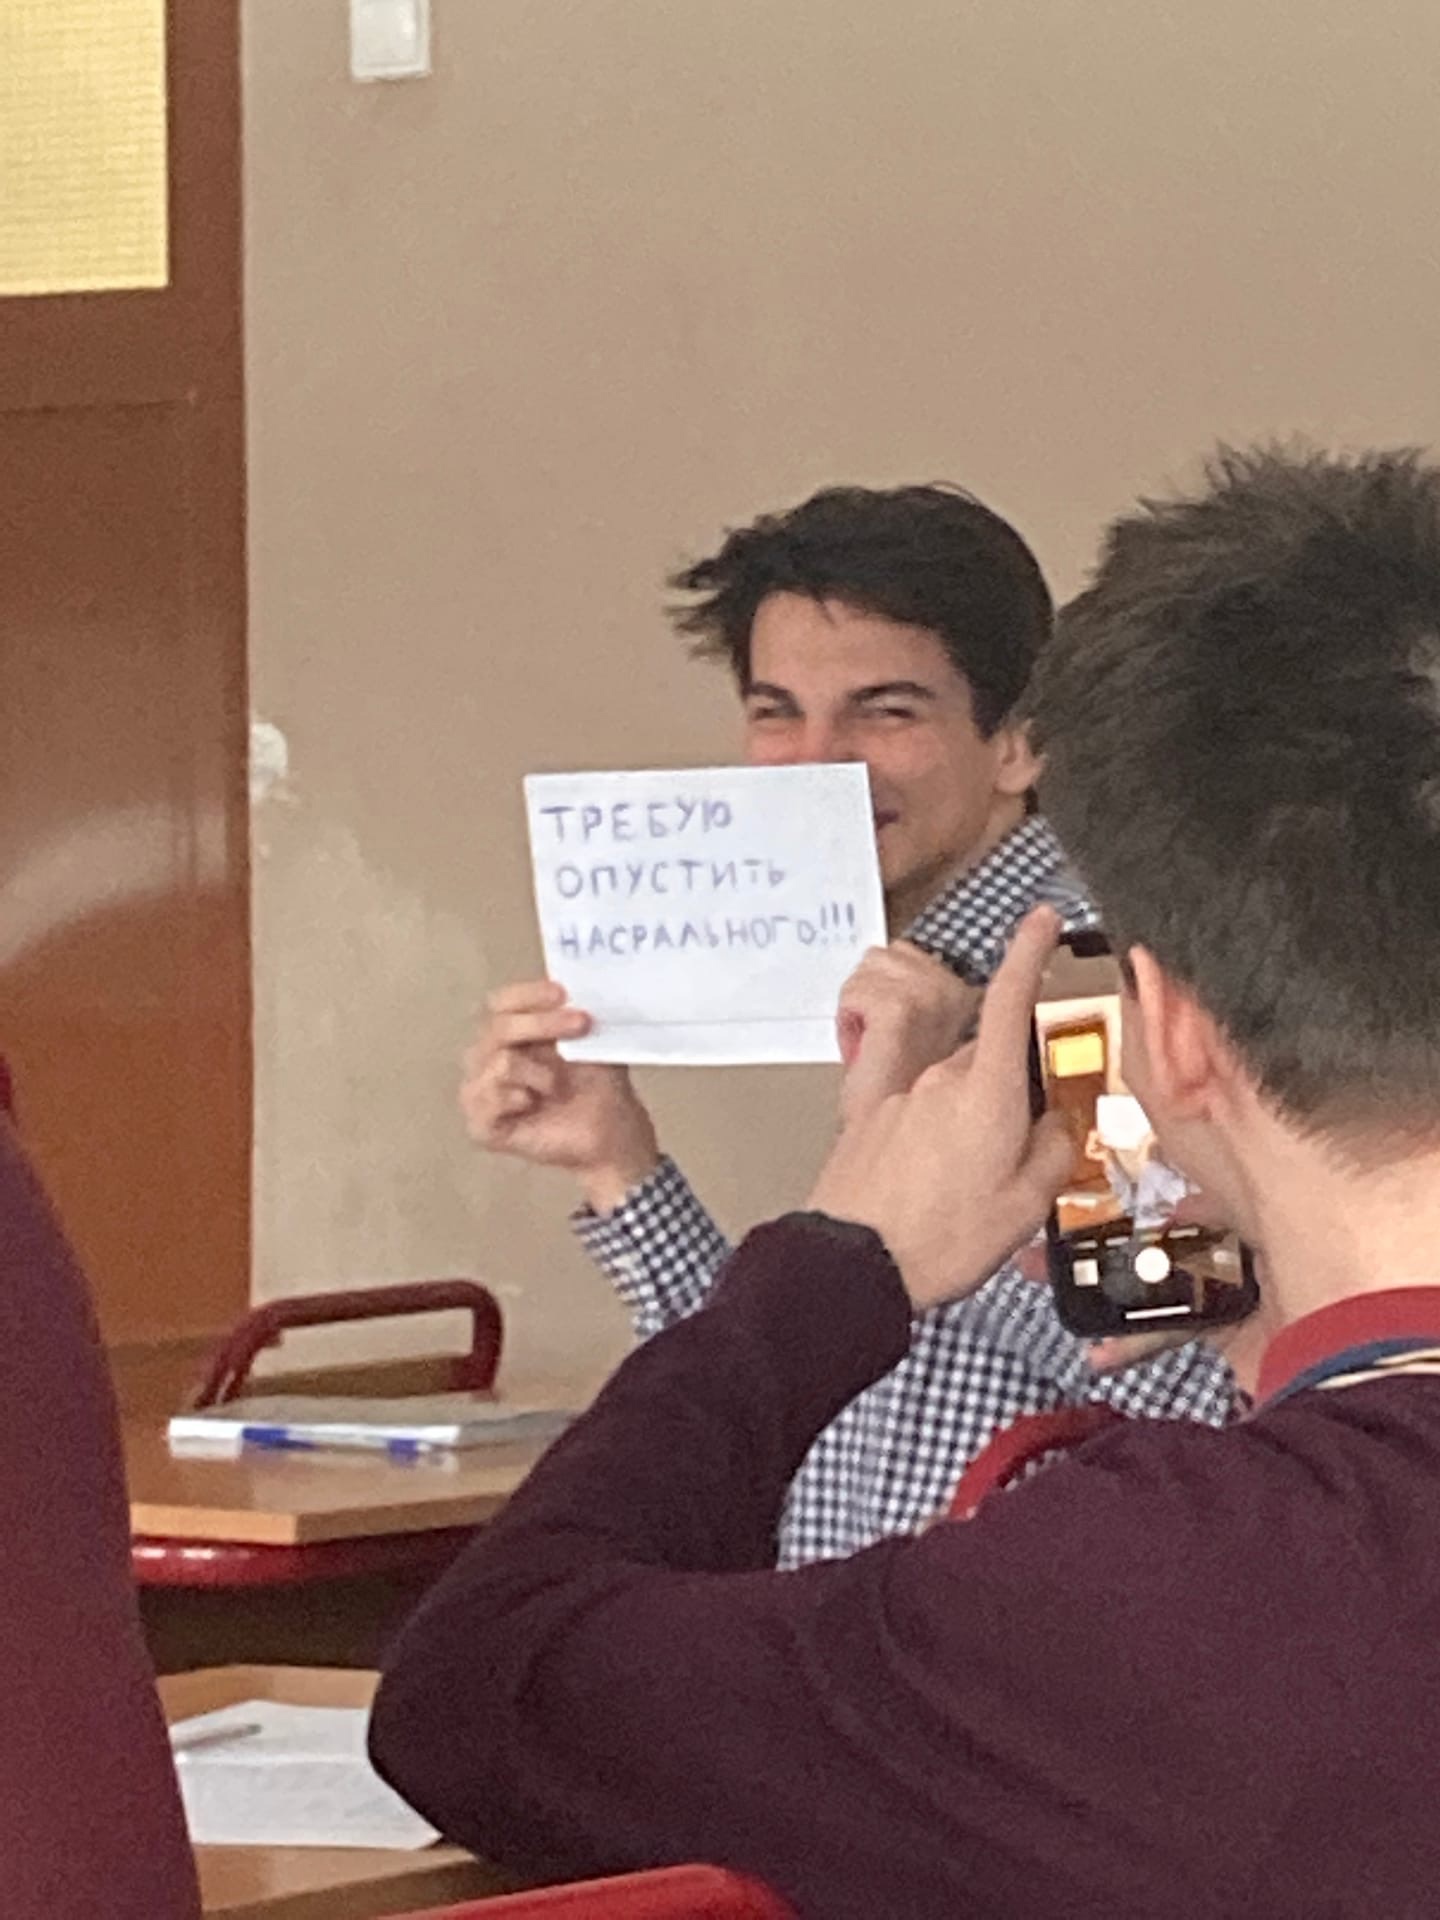 ТРЕБУЮ
ОПУСТИТЬ
НАСРАЛЬНОГО!!!